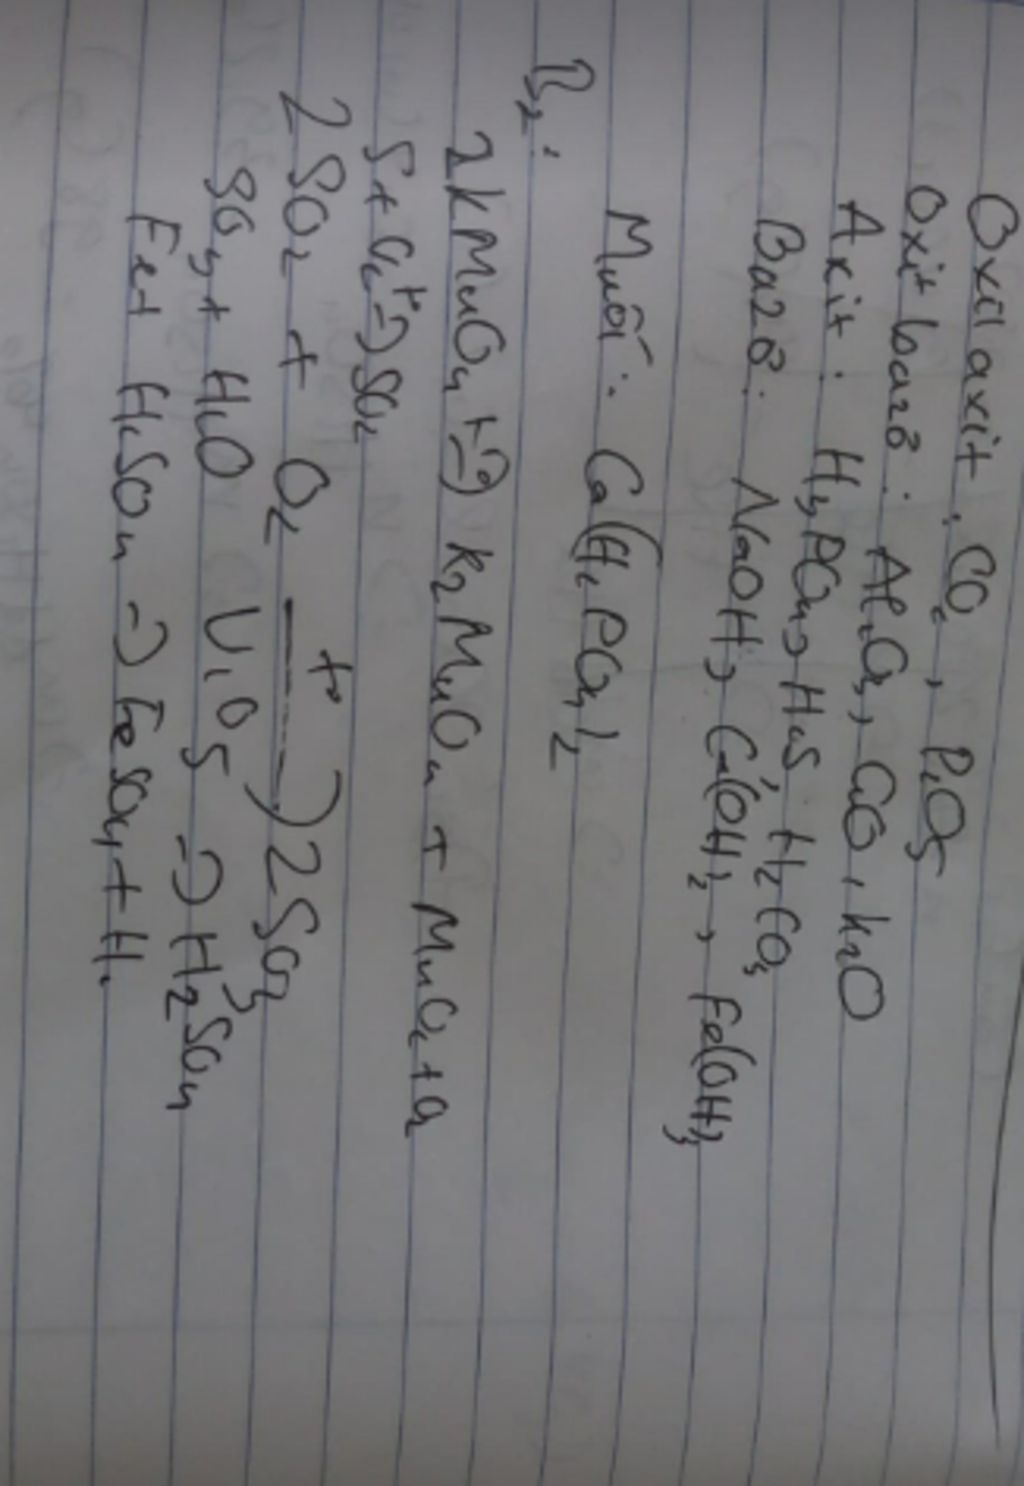 Oxit axit: CO2, P2O5
Oxit bazơ: Al2O3, CuO, K2O
Axit: H3PO4, H2S, H2CO3
Bazơ: NaOH, Cu(OH)2, Fe(OH)3
Muối: Ca(H2PO4)2
B2:
2KMnO4 t°→ K2MnO4 + MnO2 + O2
S + O2 t°→ SO2
2SO2 + O2 t°→ 2SO3
SO3 + H2O V2O5 → H2SO4
Fe + H2SO4 → FeSO4 + H2